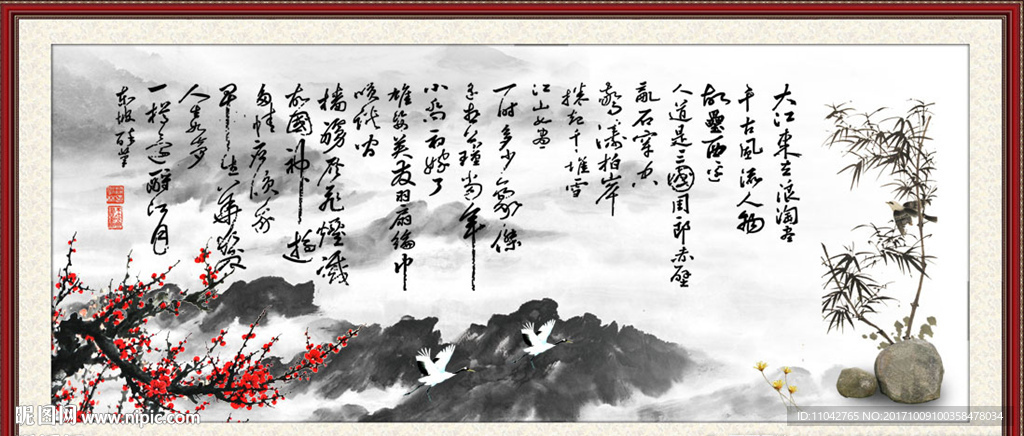 大江東去浪淘尽
千古風流人物
故壘西边
人道是三國周郎赤壁
亂石穿空
驚濤拍岸
捲起千堆雪
江山如畫
一时多少豪傑
遥想公瑾當年
小喬初嫁了
雄姿英發羽扇綸巾
談笑間
檣櫓灰飛煙滅
故國神遊
多情應笑我
早生華髮
人生如夢
一樽還酹江月
東坡
昵图网 www.nipic.com
ID:11042765 NO:20171009100358478034